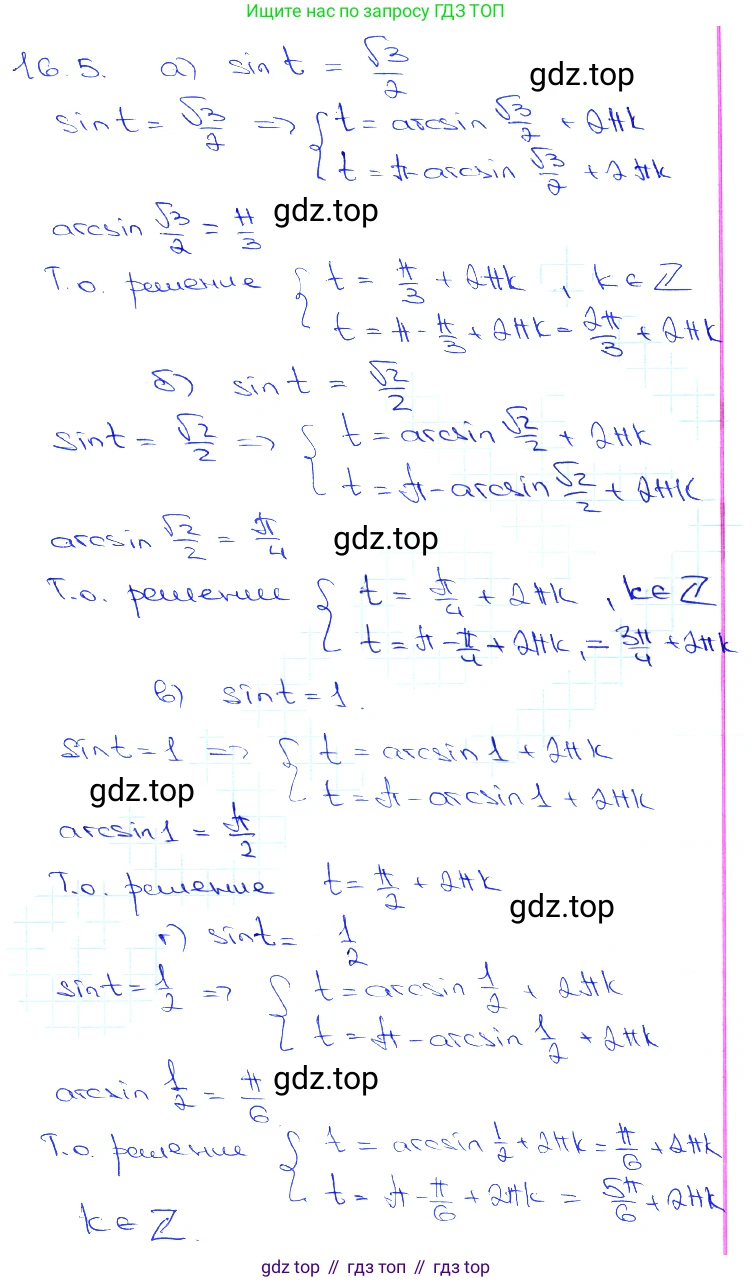 Ищите нас по запросу ГДЗ ТОП
16.5. а) sin t = √3/2
gdz.top
sin t = √3/2 => { t = arcsin √3/2 + 2πk
t = π - arcsin √3/2 + 2πk
arcsin √3/2 = π/3
gdz.top
Т.о. решение { t = π/3 + 2πk , k ∈ Z
t = π - π/3 + 2πk = 2π/3 + 2πk
б) sin t = √2/2
sin t = √2/2 => { t = arcsin √2/2 + 2πk
t = π - arcsin √2/2 + 2πk
arcsin √2/2 = π/4
gdz.top
Т.о. решение { t = π/4 + 2πk , k ∈ Z
t = π - π/4 + 2πk, = 3π/4 + 2πk
в) sin t = 1.
sin t = 1 => { t = arcsin 1 + 2πk
t = π - arcsin 1 + 2πk
gdz.top
arcsin 1 = π/2
Т.о. решение t = π/2 + 2πk
gdz.top
г) sin t = 1/2
sin t = 1/2 => { t = arcsin 1/2 + 2πk
t = π - arcsin 1/2 + 2πk
arcsin 1/2 = π/6
gdz.top
Т.о. решение { t = arcsin 1/2 + 2πk = π/6 + 2πk
t = π - π/6 + 2πk = 5π/6 + 2πk
k ∈ Z.
gdz top // гдз топ // gdz.top // гдз.топ